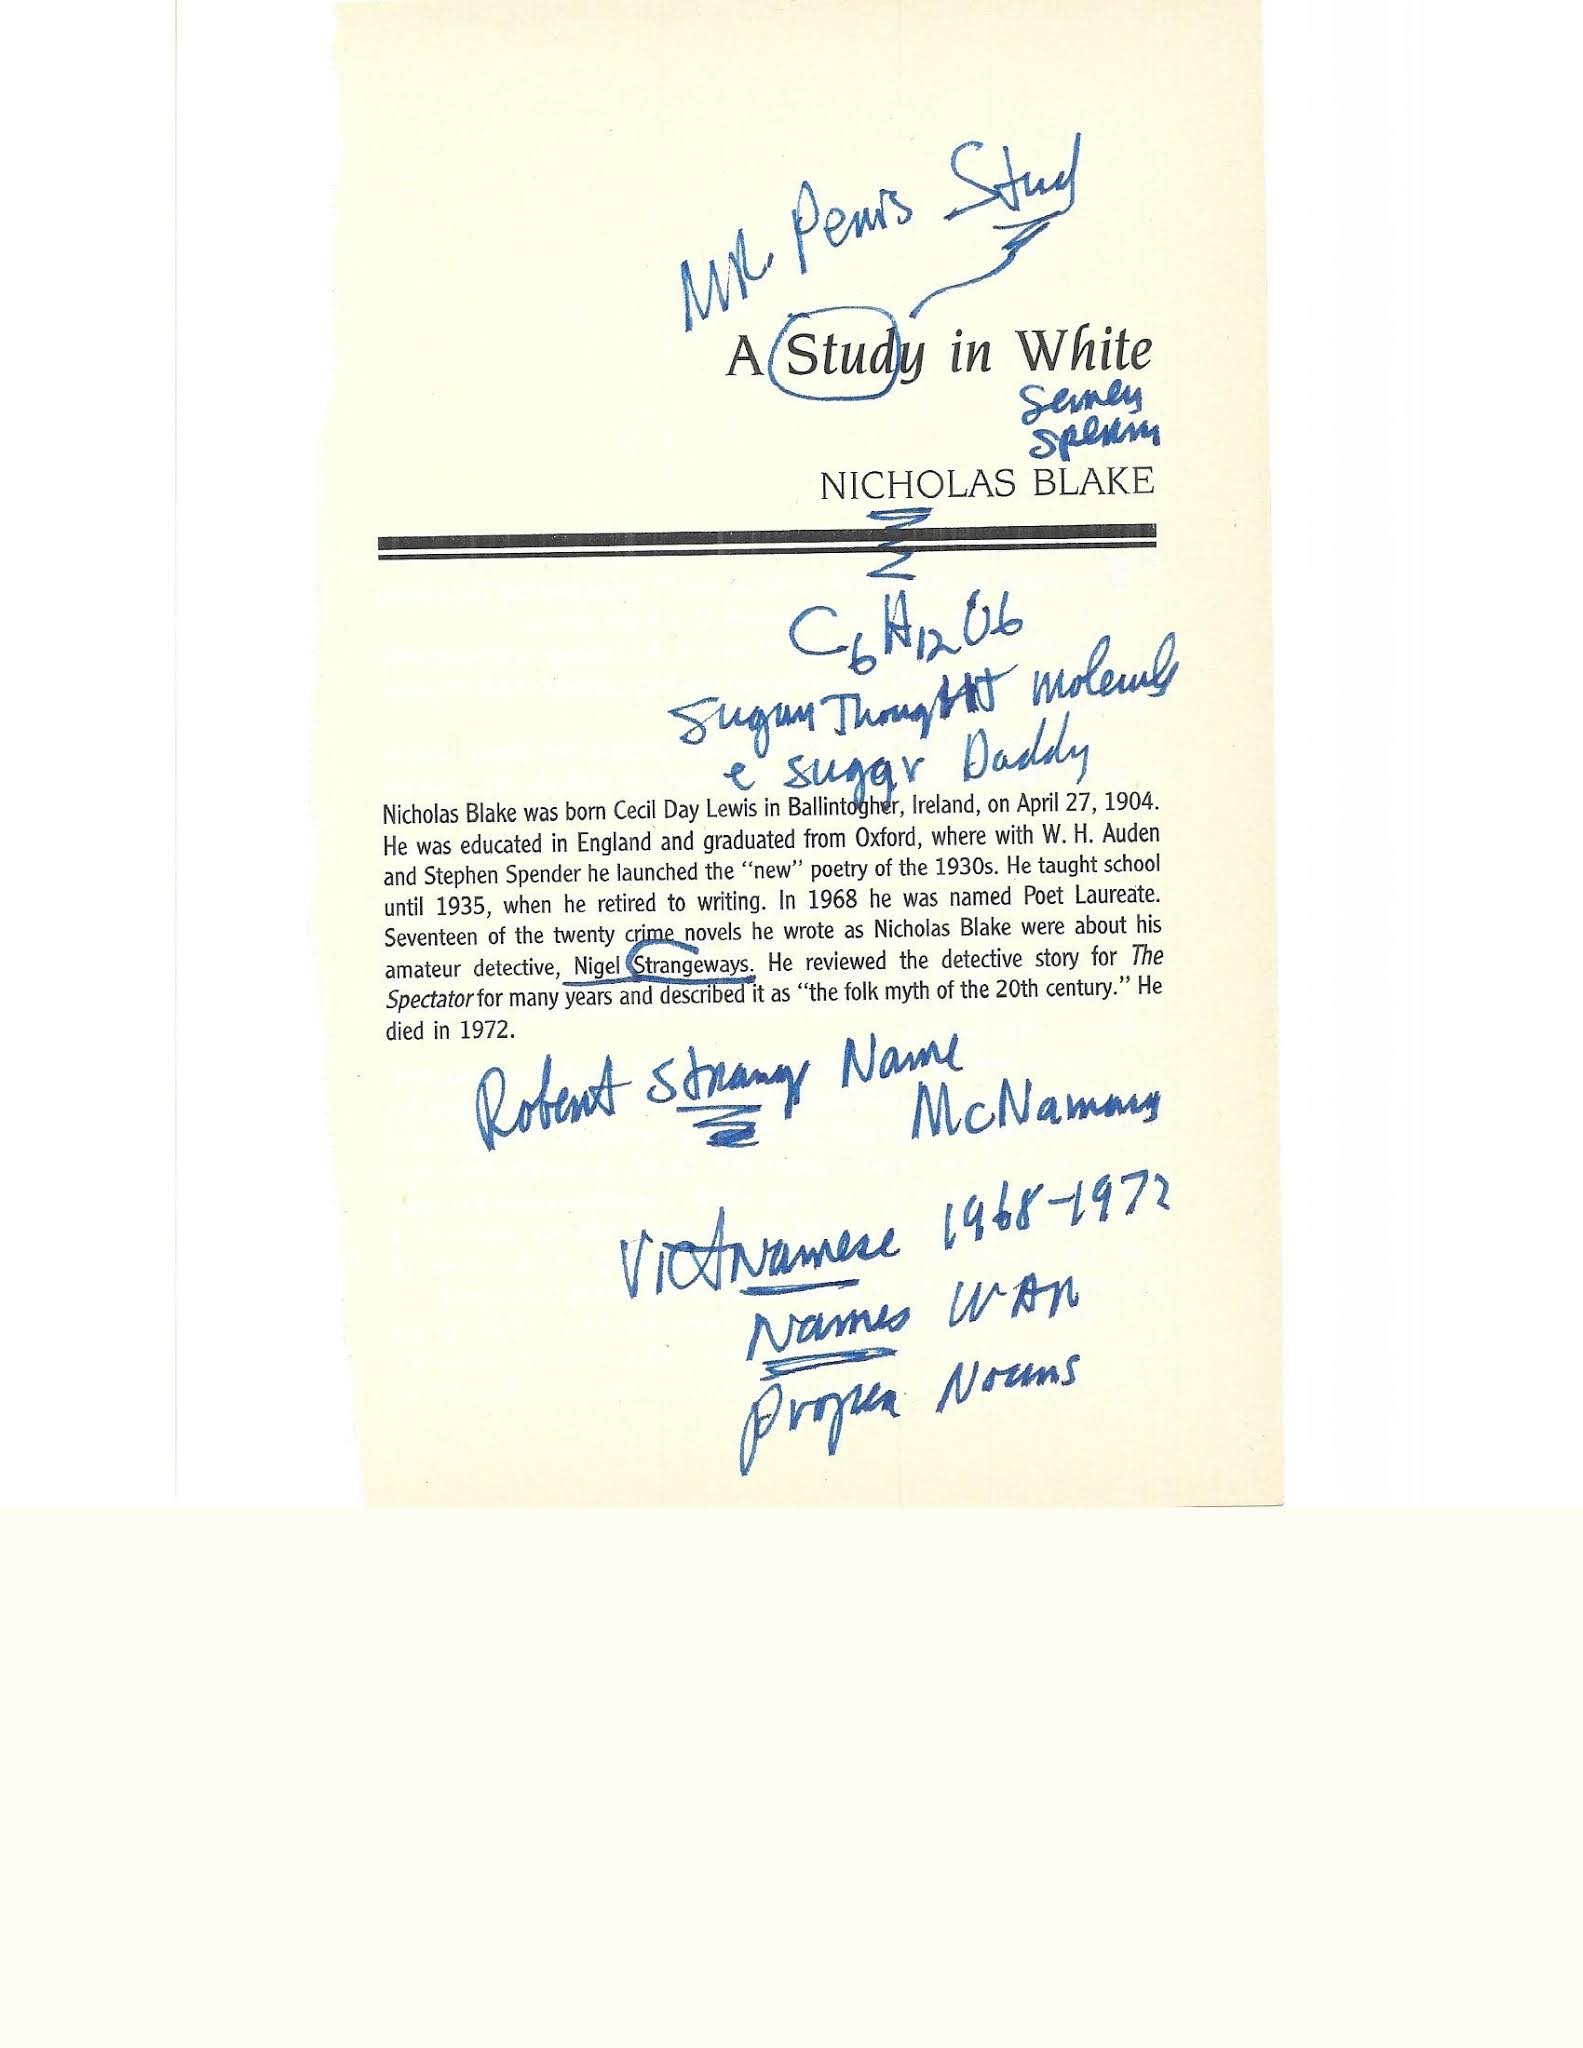 MR. Penis Stud
A Study in White
Semen
Sperm
NICHOLAS BLAKE
C6H12O6
Sugar Thought Molecule
e suggr Daddy
Nicholas Blake was born Cecil Day Lewis in Ballintogher, Ireland, on April 27, 1904.
He was educated in England and graduated from Oxford, where with W. H. Auden
and Stephen Spender he launched the “new” poetry of the 1930s. He taught school
until 1935, when he retired to writing. In 1968 he was named Poet Laureate.
Seventeen of the twenty crime novels he wrote as Nicholas Blake were about his
amateur detective, Nigel Strangeways. He reviewed the detective story for The
Spectator for many years and described it as “the folk myth of the 20th century.” He
died in 1972.
Robert Strange Name
McNamara
VietNamese 1968-1972
Names WAR
Proper Nouns